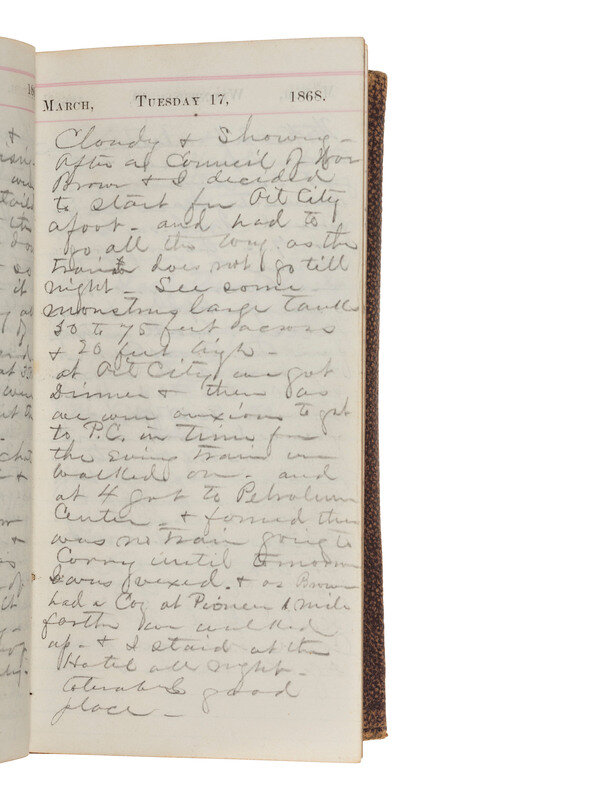 March, Tuesday 17, 1868.
Cloudy & Showing -
After a Council of War
Brown & I decided
to start for Oil City
afoot - and had to
go all the way as the
train does not go till
night - See some
monstrus large tanks
30 to 75 feet across
& 20 feet high -
at Oil City we got
Dinner & then as
we were anxious to get
to P.C. in time for
the evning train we
walked on - and
at 4 got to Petroleum
Center - & found there
was no train going to
Corry until tomorrow
I was vexed - & as Brown
had a Coz at Pioneer 1 mile
farther we walked
up - & I staid at the
Hotel all night -
tolerable good
place -